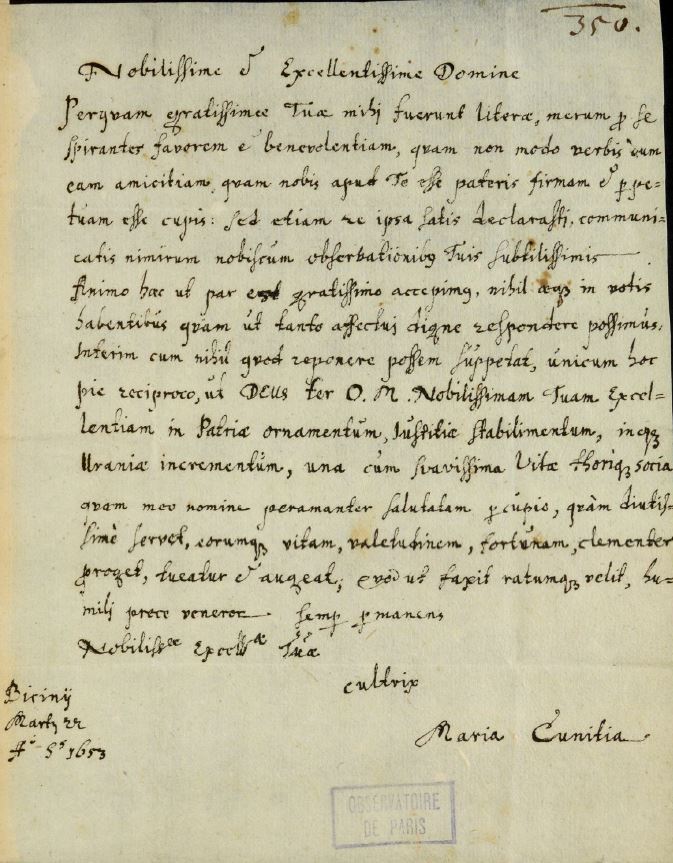 350.
Nobilissime & Excellentissime Domine
Perquam gratissimæ Tuæ mihj fuerunt literæ, merum p se
spirantes favorem & benevolentiam, quam non modo verbis cum
eam amicitiam, quam nobis apud Te esse pateris firmam & ppe-
tuam esse cupis: sed etiam re ipsa satis declarasti, communi-
catis nimirum nobiscum observationibq Tuis subtilissimis
Animo hæc ut par est gratissimo accepimq, nihil æq in votis
habentibus quam ut tanto affectui digne respondere possimus,
Interim cum nihil quod reponere possem suppetat, unicum hoc
pie reciproco, ut DEUS ter O. M. Nobilissimam Tuam Excel-
lentiam in Patriæ ornamentum, Iustitiæ stabilimentum, inq
Uraniæ incrementum, una cum suavissima Vitæ thoriq socia
quam meo nomine peramanter salutatam p cupio, quàm diutis-
simè servet, eorumq vitam, valetudinem, fortunam, clementer
proget, tueatur & augeat; quod ut faxit ratumq velit, hu-
milj prece veneror semp pmanens
Nobilissæ Excellæ Tuæ
cultrix
Maria Cunitia
Bicinij
Martij 22
Aº 1653
OBSERVATOIRE
DE PARIS